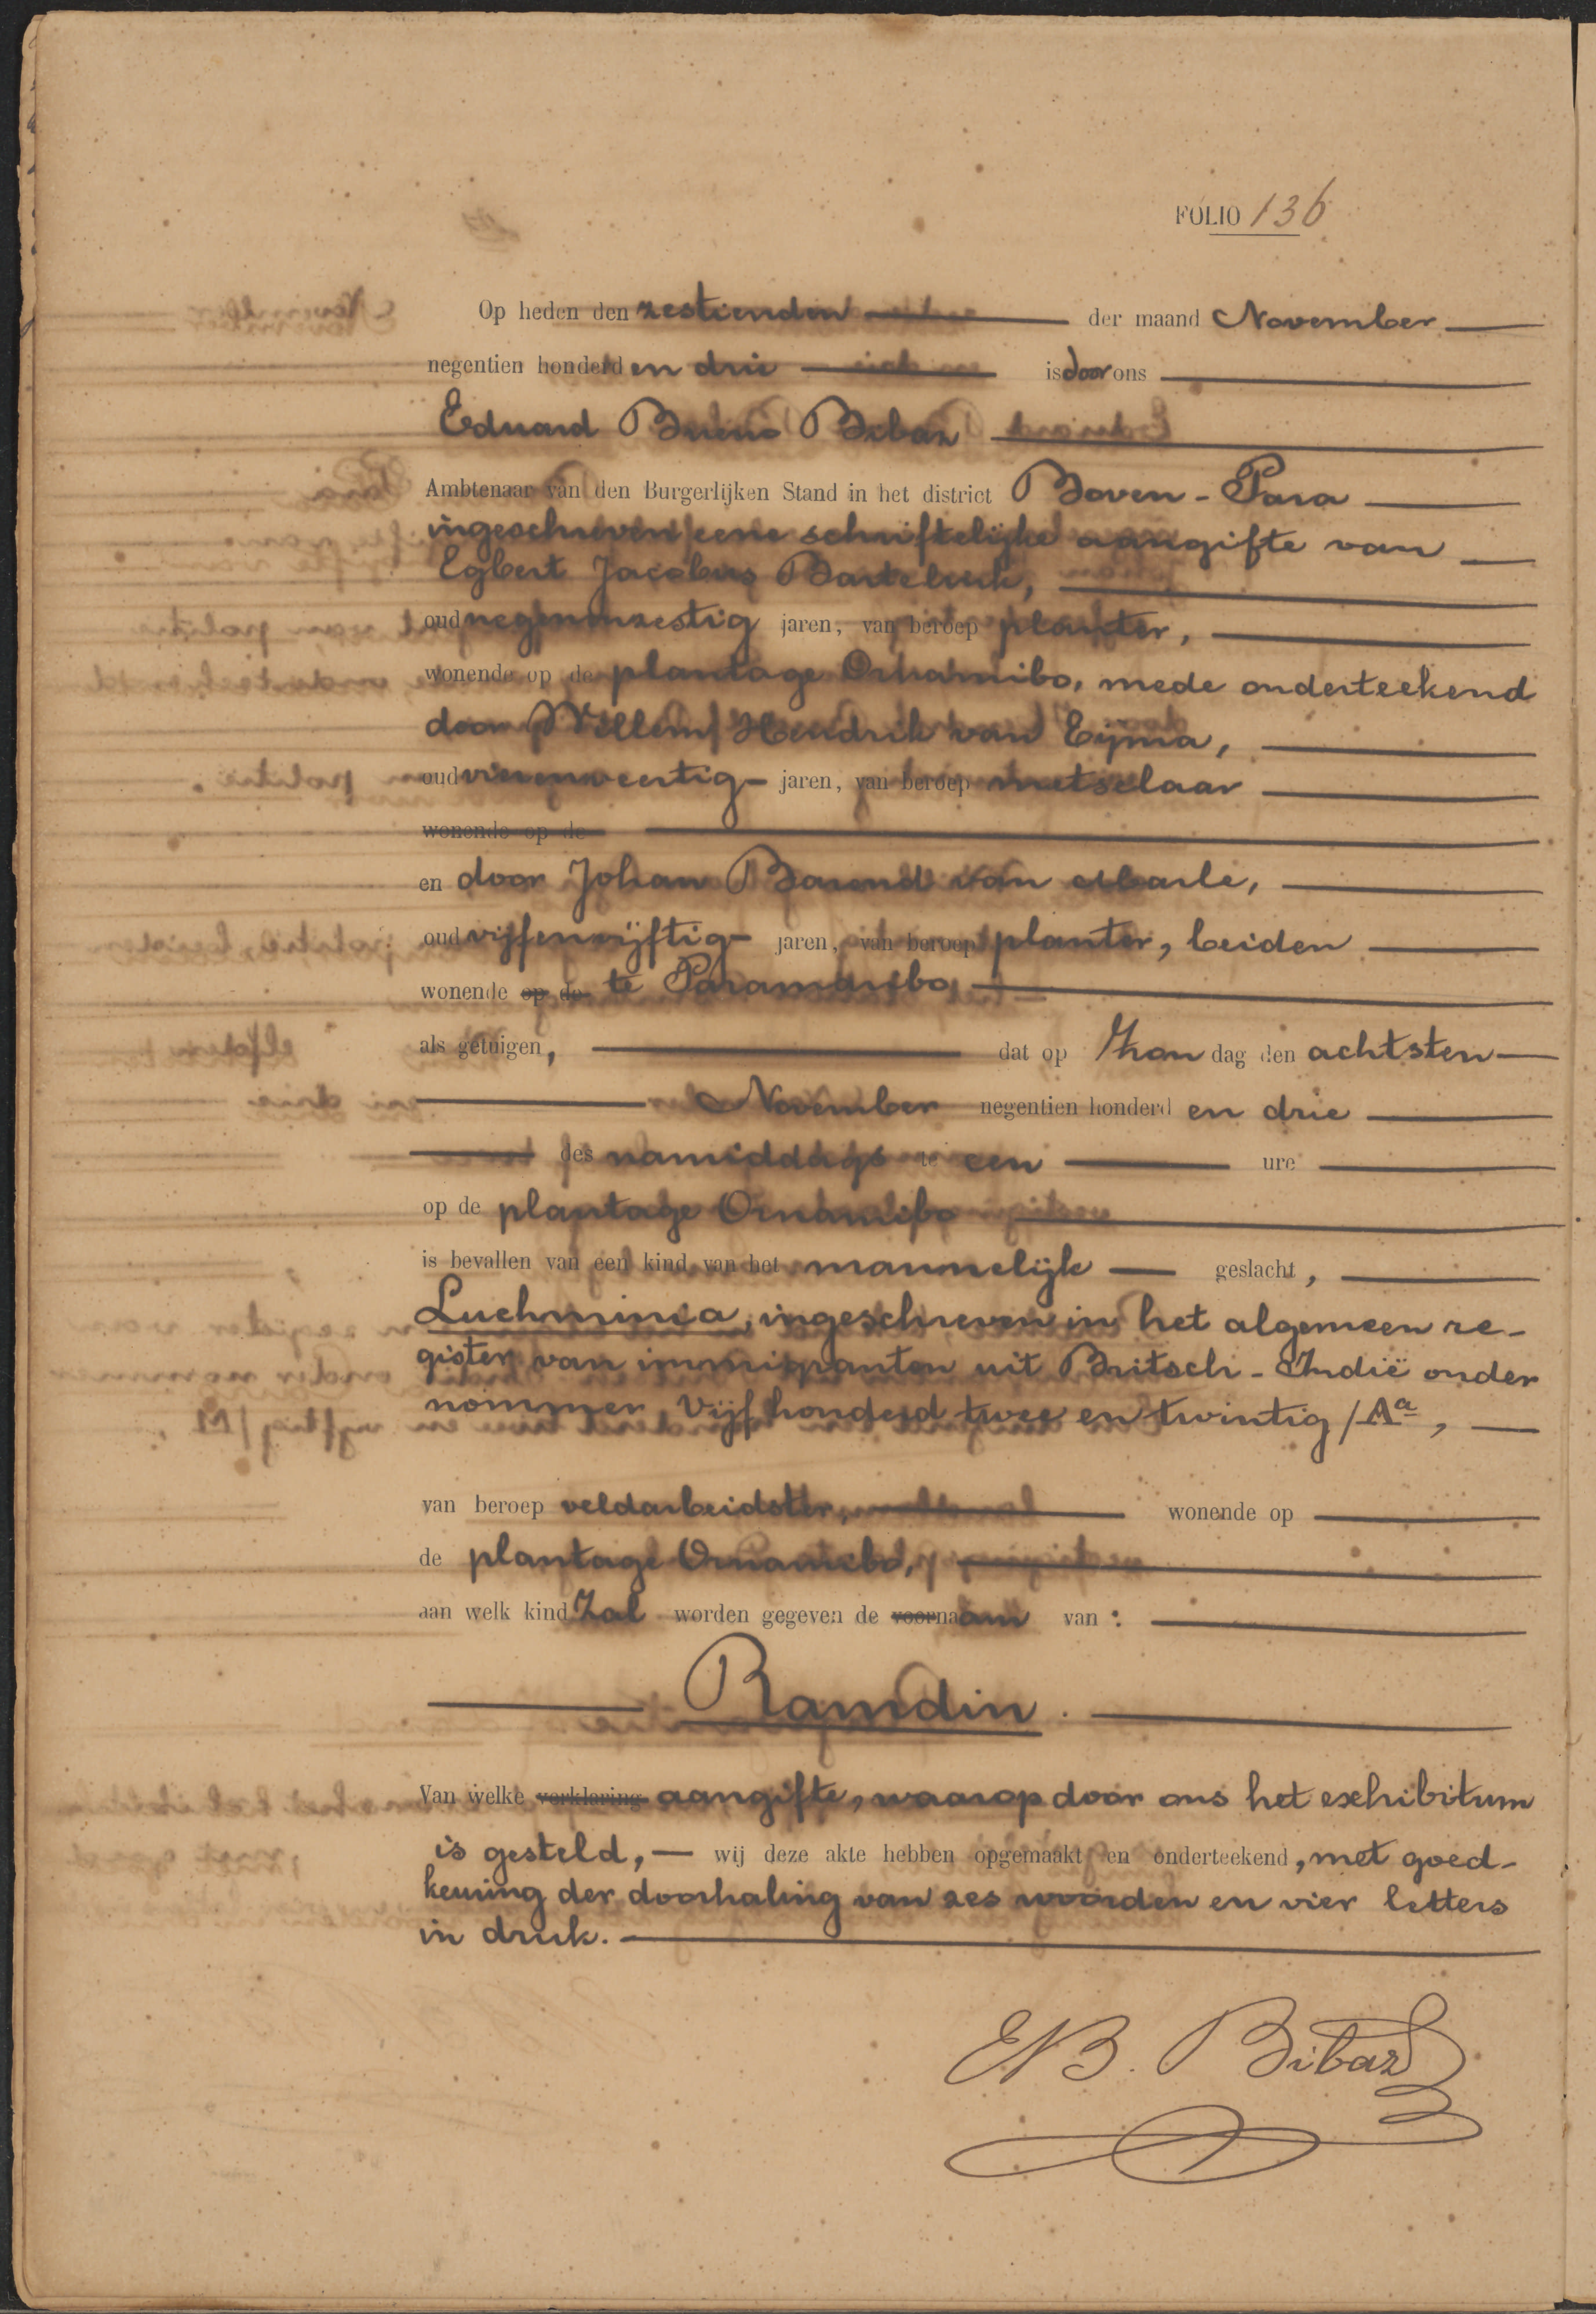 FOLIO 136
Op heden den zestienden der maand November
negentien honderd en drie is door ons
Eduard Bueno Bibaz
Ambtenaar van den Burgerlijken Stand in het district Boven-Para
ingeschreven eene schriftelijke aangifte van
Egbert Jacobus Bartelink,
oud negenenzestig jaren, van beroep planter,
wonende op de plantage Onoribo, mede onderteekend
door Willem Hendrik van Eyma,
oud vierenveertig jaren, van beroep metselaar
wonende op de
en door Johan Barend van
oud vijfenvijftig jaren, van beroep planter, beiden
wonende op de te Paramaribo,
als getuigen, dat op Zondag den achtsten
November negentien honderd en drie
des namiddags te een ure
op de plantage
is bevallen van een kind van het mannelijk geslacht,
Luchminia, ingeschreven in het algemeen re-
gister van immigranten uit Britsch-Indië onder
nommer Vijf honderd twee en twintig/Aa,
van beroep veldarbeidster, wonende op
de plantage
aan welk kind Zal worden gegeven de voornaam van:
Ramdin.
Van welke verklaring aangifte, waarop door ons het exhibitum
is gesteld, wij deze akte hebben opgemaakt en onderteekend, met goed-
keuring der doorhaling van zes woorden en vier letters
in druk.
EB. Bibaz